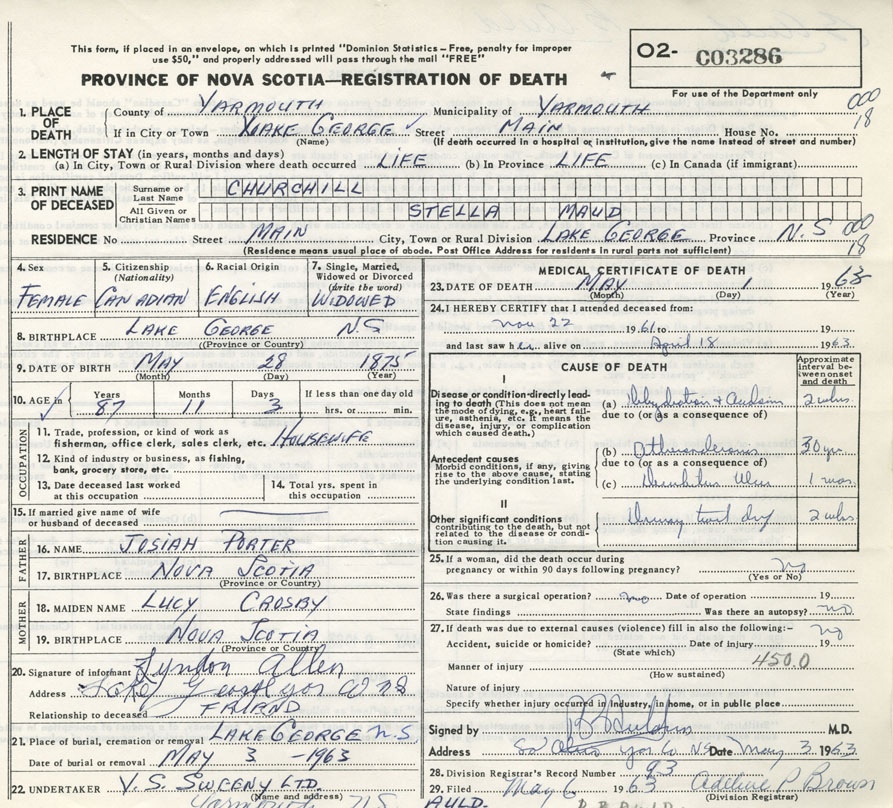 This form, if placed in an envelope, on which is printed "Dominion Statistics - Free, penalty for improper
use $50," and properly addressed will pass through the mail "FREE"
O2- C03286
PROVINCE OF NOVA SCOTIA—REGISTRATION OF DEATH
For use of the Department only
1. PLACE OF DEATH
County of YARMOUTH Municipality of YARMOUTH
000
18
If in City or Town LAKE GEORGE Street MAIN House No.
(Name) (If death occurred in a hospital or institution, give the name instead of street and number)
2. LENGTH OF STAY (in years, months and days)
(a) In City, Town or Rural Division where death occurred LIFE (b) In Province LIFE (c) In Canada (if immigrant)
3. PRINT NAME OF DECEASED
Surname or Last Name CHURCHILL
All Given or Christian Names STELLA MAUD
RESIDENCE No Street MAIN City, Town or Rural Division LAKE GEORGE Province N.S 000
18
(Residence means usual place of abode. Post Office Address for residents in rural parts not sufficient)
4. Sex
FEMALE
5. Citizenship (Nationality)
CANADIAN
6. Racial Origin
ENGLISH
7. Single, Married, Widowed or Divorced (write the word)
WIDOWED
8. BIRTHPLACE LAKE GEORGE N.S
(Province or Country)
9. DATE OF BIRTH MAY 28 1875
(Month) (Day) (Year)
10. AGE in Years Months Days If less than one day old
87 11 3 hrs. or min.
OCCUPATION
11. Trade, profession, or kind of work as
fisherman, office clerk, sales clerk, etc. HOUSEWIFE
12. Kind of industry or business, as fishing,
bank, grocery store, etc.
13. Date deceased last worked
at this occupation
14. Total yrs. spent in
this occupation
15. If married give name of wife
or husband of deceased
FATHER
16. NAME JOSIAH PORTER
17. BIRTHPLACE NOVA SCOTIA
(Province or Country)
MOTHER
18. MAIDEN NAME LUCY CROSBY
19. BIRTHPLACE NOVA SCOTIA
(Province or Country)
20. Signature of informant Lyndon Allen
Address Lake George Yar Co N S
Relationship to deceased FRIEND
21. Place of burial, cremation or removal LAKE GEORGE N.S.
Date of burial or removal MAY 3 -1963
22. UNDERTAKER V.S. SWEENY LTD.
(Name and address)
Yarmouth N.S.
MEDICAL CERTIFICATE OF DEATH
23. DATE OF DEATH MAY 1 1963
(Month) (Day) (Year)
24. I HEREBY CERTIFY that I attended deceased from:
Nov 22 1961 to 19
and last saw her alive on April 18 1963
CAUSE OF DEATH
Approximate interval between onset and death
I
Disease or condition directly leading to death (This does not mean the mode of dying, e.g., heart failure, asthenia, etc. It means the disease, injury, or complication which caused death.)
(a) Dehydration & 2 wks.
due to (or as a consequence of)
Antecedent causes
Morbid conditions, if any, giving rise to the above cause, stating the underlying condition last.
(b) 30 yr.
due to (or as a consequence of)
(c) Decubitus Ulcer 1 mos.
II
Other significant conditions
contributing to the death, but not related to the disease or condition causing it.
Urinary tract 2 wks
25. If a woman, did the death occur during
pregnancy or within 90 days following pregnancy? no
(Yes or No)
26. Was there a surgical operation? no Date of operation 19
State findings Was there an autopsy? no
27. If death was due to external causes (violence) fill in also the following:- no
Accident, suicide or homicide? Date of injury 19
(State which)
Manner of injury 450.0
(How sustained)
Nature of injury
Specify whether injury occurred in industry, in home, or in public place
Signed by M.D.
Address So Ohio Yar Co NS Date May 3 1963
28. Division Registrar's Record Number 93
29. Filed May 6 1963 Adeline P Brown
(Division Registrar)
AULD.